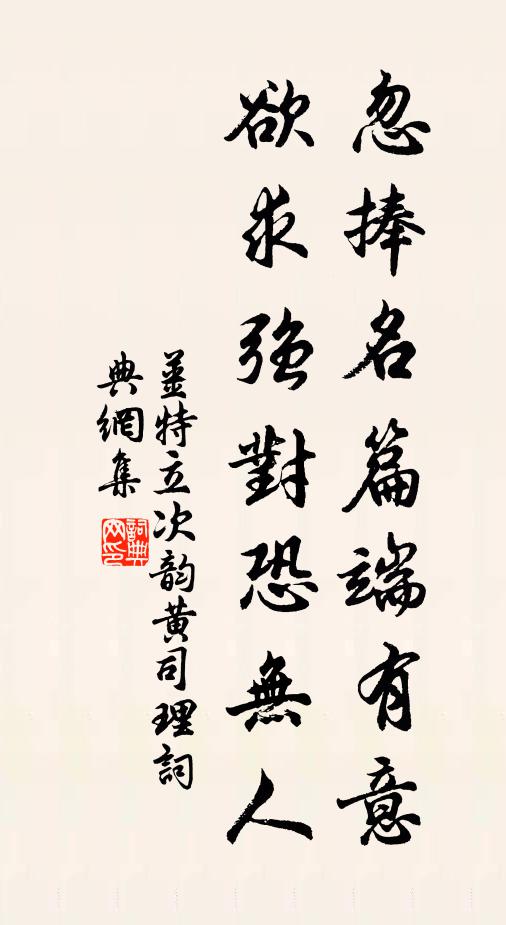 忽捧名篇端有意
欲求強對恐無人
姜特立次韵黄司理詞
典網集
詞典网印